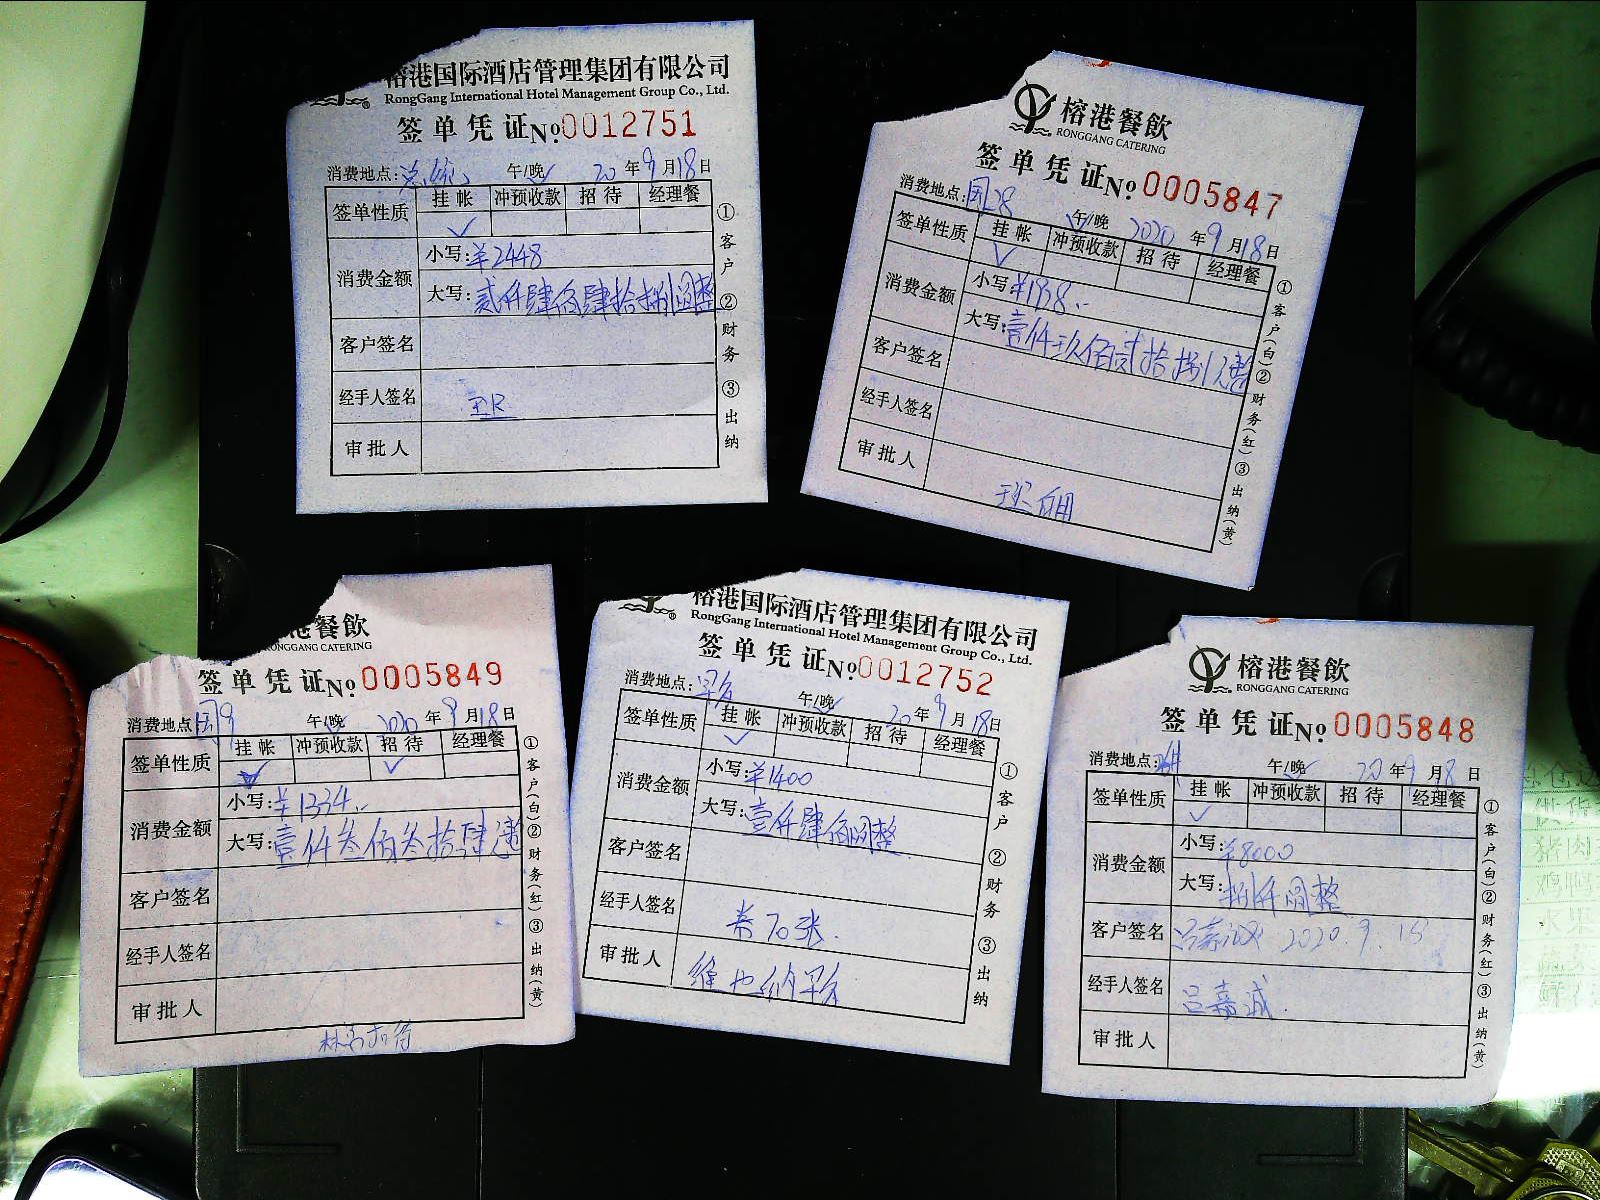 榕港国际酒店管理集团有限公司
RongGang International Hotel Management Group Co., Ltd.
签单凭证 No 0012751
消费地点: 午/晚 20年9月18日
签单性质 挂帐 冲预收款 招待 经理餐
✓
消费金额 小写:¥2448
大写:贰仟肆佰肆拾捌圆整
客户签名
经手人签名
审批人
①客户 ②财务 ③出纳
榕港餐飲
RONGGANG CATERING
签单凭证 No 0005847
消费地点:国28 午/晚 2020年9月18日
签单性质 挂帐 冲预收款 招待 经理餐
✓
消费金额 小写:¥1938
大写:壹仟玖佰贰拾捌元整
客户签名
经手人签名
审批人
①客户(白)②财务(红)③出纳(黄)
港餐飲
RONGGANG CATERING
签单凭证 No 0005849
消费地点:国9 午/晚 2020年9月18日
签单性质 挂帐 冲预收款 招待 经理餐
✓
消费金额 小写:¥1334
大写:壹仟叁佰叁拾肆元整
客户签名
经手人签名
审批人
①客户(白)②财务(红)③出纳(黄)
榕港国际酒店管理集团有限公司
RongGang International Hotel Management Group Co., Ltd.
签单凭证 No 0012752
消费地点: 午/晚 20年9月18日
签单性质 挂帐 冲预收款 招待 经理餐
✓
消费金额 小写:¥1400
大写:壹仟肆佰圆整
客户签名
经手人签名 券70张.
审批人 维也纳早
①客户 ②财务 ③出纳
榕港餐飲
RONGGANG CATERING
签单凭证 No 0005848
消费地点: 午/晚 20年9月18日
签单性质 挂帐 冲预收款 招待 经理餐
✓
消费金额 小写:¥8000
大写:捌仟圆整
客户签名 吕嘉诚 2020.9.18
经手人签名 吕嘉诚.
审批人
①客户(白)②财务(红)③出纳(黄)